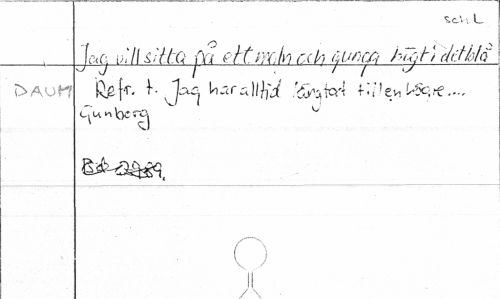 sch L
Jag vill sitta på ett moln och gunga högt i det blå
DAUM Refr. t. Jag har alltid längtat till en högre....
Gunberg
Bd